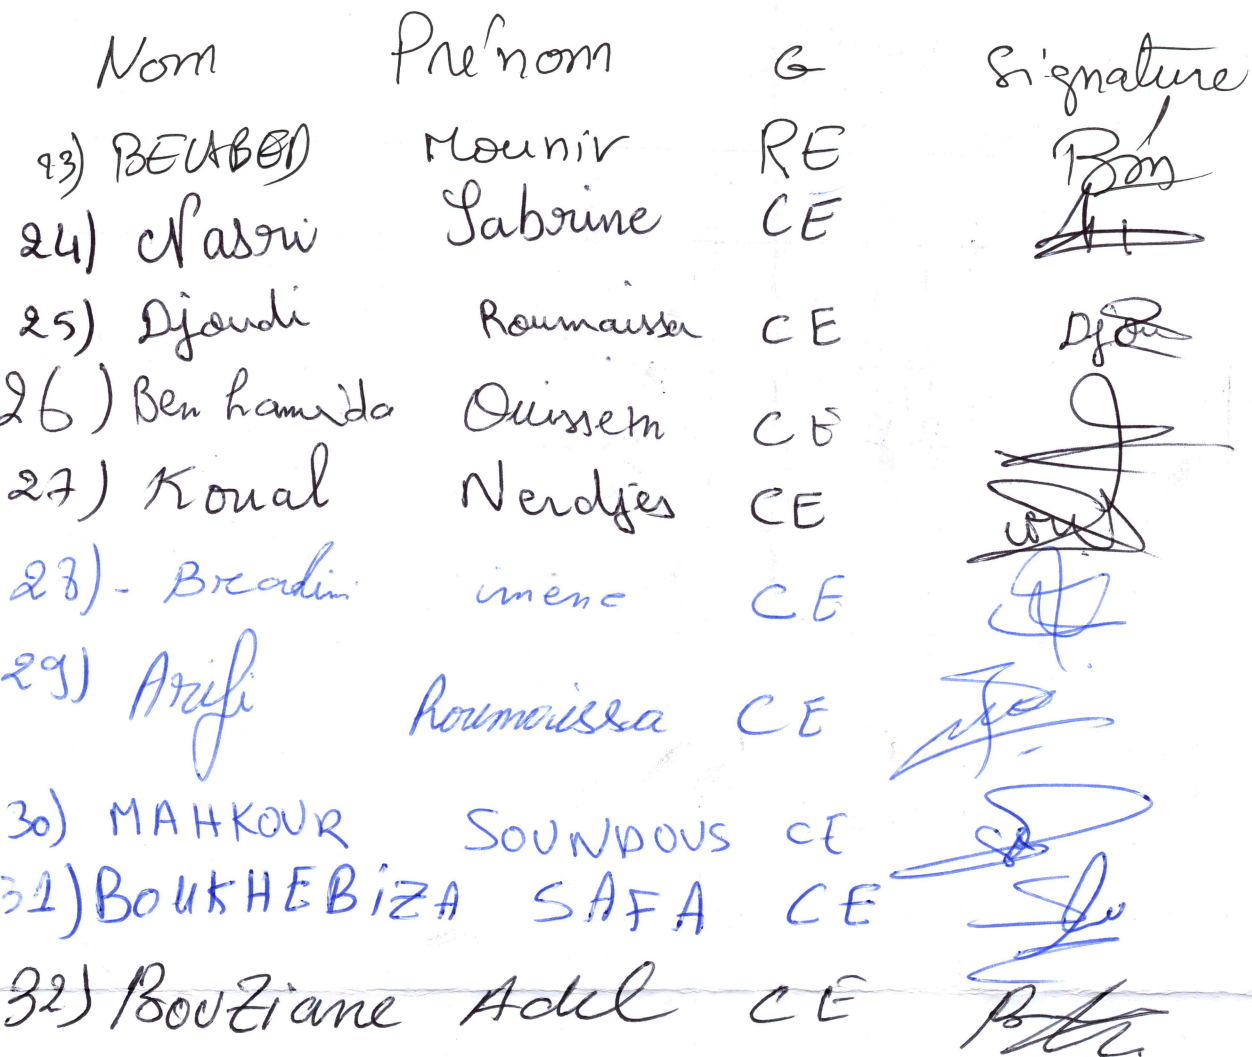 Nom Prénom G Signature
23) BELABED Mounir RE
24) Nasri Sabrine CE
25) Djoudi Roumaissa CE Djou
26) Ben hamida Ouissem CE
27) Koual Nerdjes CE
28)- imene CE
29) Arifi Roumaissa CE
30) MAHKOUR SOUNDOUS CE
31) BOUKHEBiZA SAFA CE
32) BouZiane Adel CE